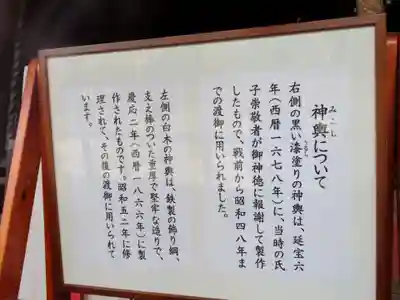 神輿について
みこし
右側の黒い漆塗りの神輿は、延宝六
年(西暦一六七八年)に、当時の氏
子崇敬者が御神徳に報謝して製作
したもので、戦前から昭和四八年ま
での渡御に用いられました。
左側の白木の神輿は、鉄製の飾り綱、
支え棒のついた重厚で堅牢な造りで、
慶応二年(西暦一八六六年)に製
作されたものです。昭和五二年に修
理されて、その後の渡御に用いられて
います。